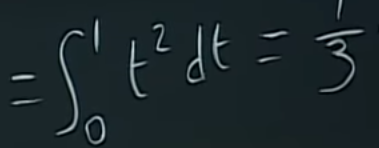 = ∫₀¹ t² dt = 1/3